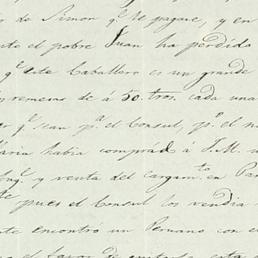 de Simon qe lo pagare, y en
te el pobre Juan ha perdido
qe este Caballero es un grande
remeras de á 50. tros. cada una
qe sean pa. el Consul, pr. el n
Maria habia comprad á J. M. u
y venta del cargamto. en Pa
pues el Consul los vendia
te encontro un Peruano con e